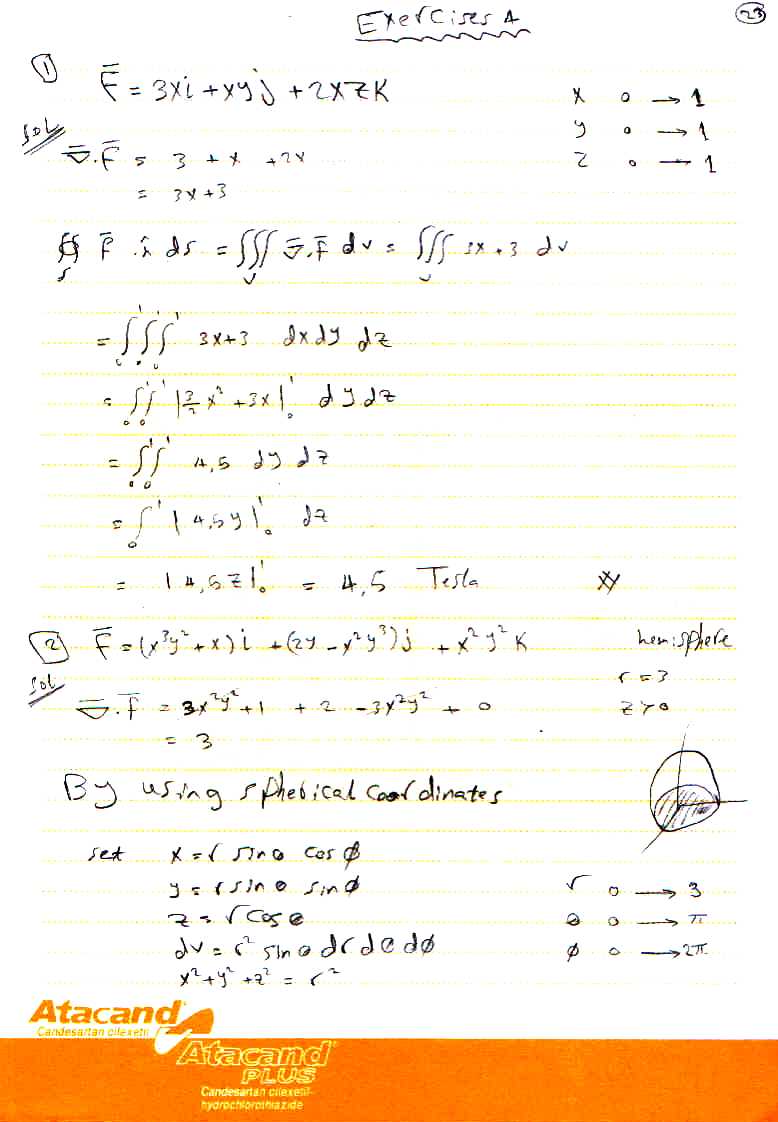 Exercises 4
23
1
F̄ = 3xi + xyj + 2xzk
x 0 → 1
y 0 → 1
z 0 → 1
sol
∇̄.F̄ = 3 + x + 2x
= 3x + 3
∯_s F̄ . n̂ ds = ∭_v ∇̄.F̄ dv = ∭_v 3x + 3 dv
= ∫₀¹∫₀¹∫₀¹ 3x+3 dx dy dz
= ∫₀¹∫₀¹ |3/2 x² + 3x|₀¹ dy dz
= ∫₀¹∫₀¹ 4,5 dy dz
= ∫₀¹ |4,5y|₀¹ dz
= |4,5z|₀¹ = 4,5 Tesla
2 F̄ = (x³y² + x)i + (2y - x²y³)j + x²y²k
hemisphere
r = 3
z > 0
sol
∇̄.F̄ = 3x²y² + 1 + 2 - 3x²y² + 0
= 3
By using spherical coordinates
set x = r sinθ cos ϕ
y = r sinθ sinϕ
z = r cosθ
dv = r² sinθ dr dθ dϕ
x² + y² + z² = r²
r 0 → 3
θ 0 → π
ϕ 0 → 2π
Atacand
Candesartan cilexetil
Atacand
PLUS
Candesartan cilexetil-
hydrochlorothiazide